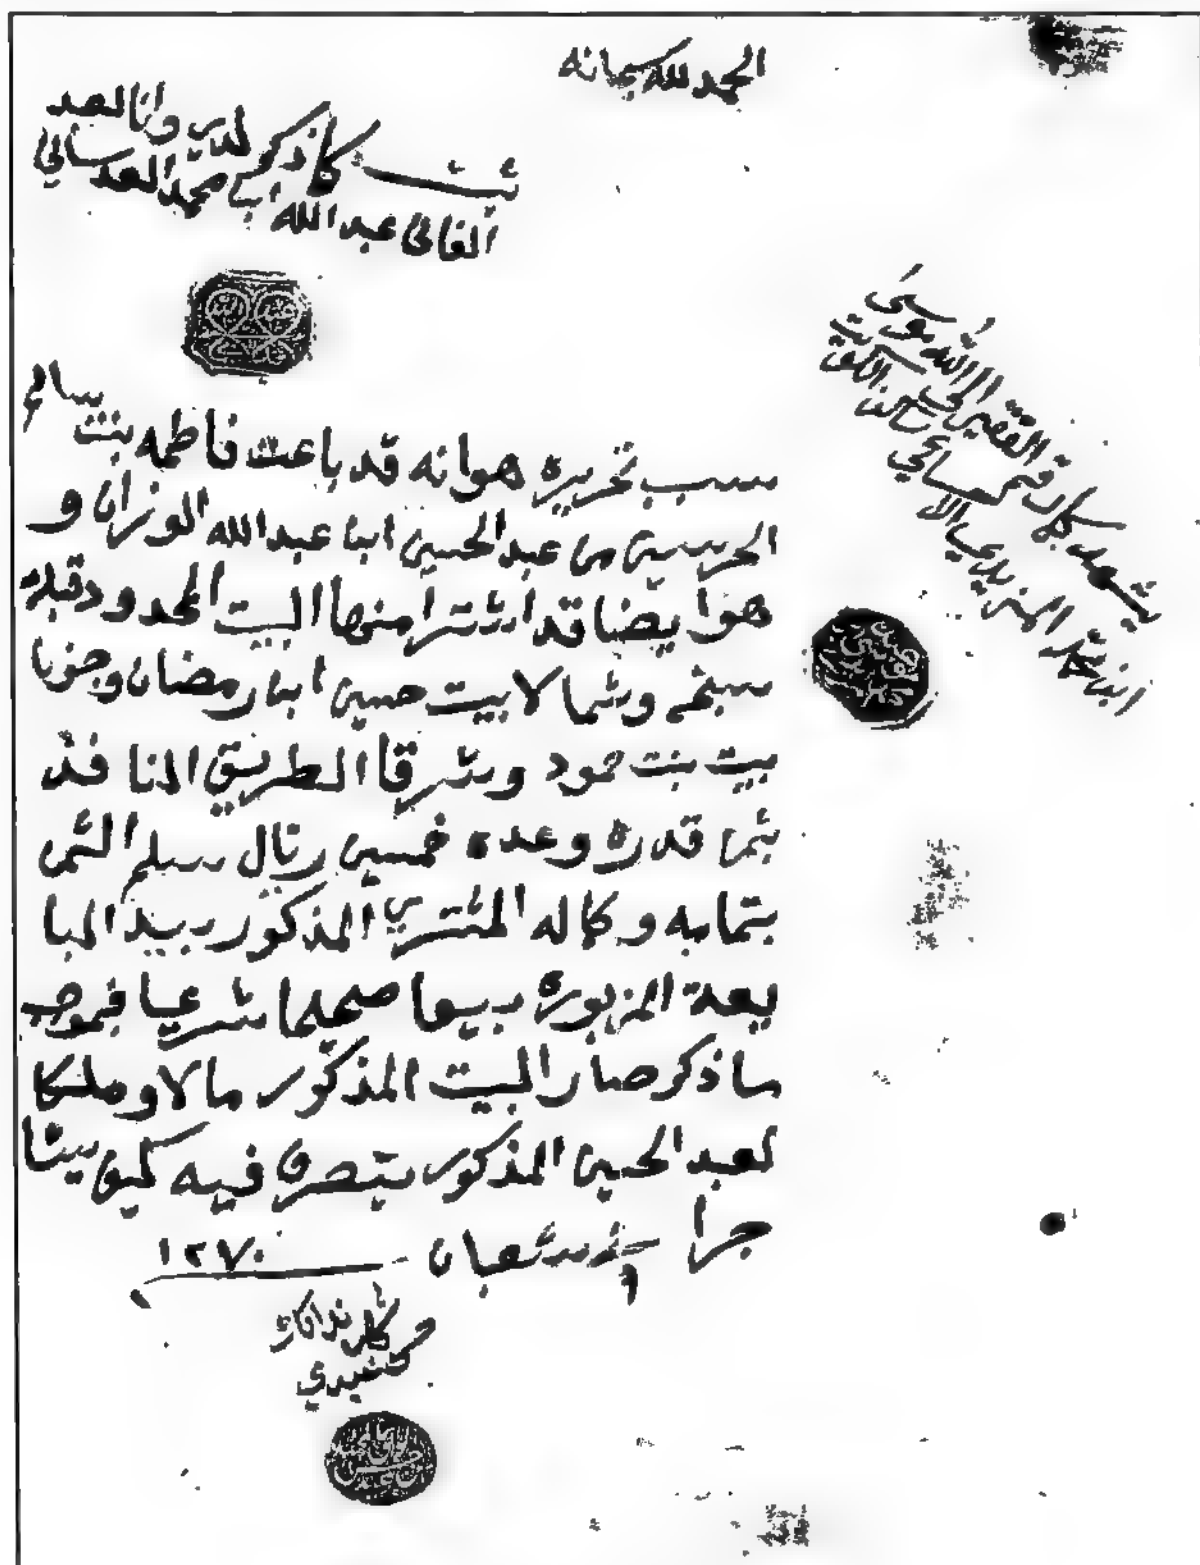 الحمد لله سبحانه
ثبت كما ذكر لدي وانا العبد
الفاني عبد الله ابن محمد العدساني
يشهد بذلك الفقير الى الله موسى
ابن المزيدي الاحسائي
سبب تحريره هو انه قد باعت فاطمه بنت سالم
من عبد الحسين ابنا عبد الله الوزان و
هو ايضا قد اشترا منها البيت المحدود قبلة
وشمالا بيت حسين ابنا رمضان وجنوبا
بيت بنت حمود وشرقا الطريق النافذ
بثمنا قدره وعده خمسين ريال سلم الثمن
بتمامه وكماله المشتري المذكور بيد البا
يعة المزبوره بيعا صحيحا شرعيا فبموجب
ما ذكر صار البيت المذكور مالا وملكا
لعبد الحسين المذكور يتصرف فيه كيف يشا
جرا شعبان ١٢٧٠